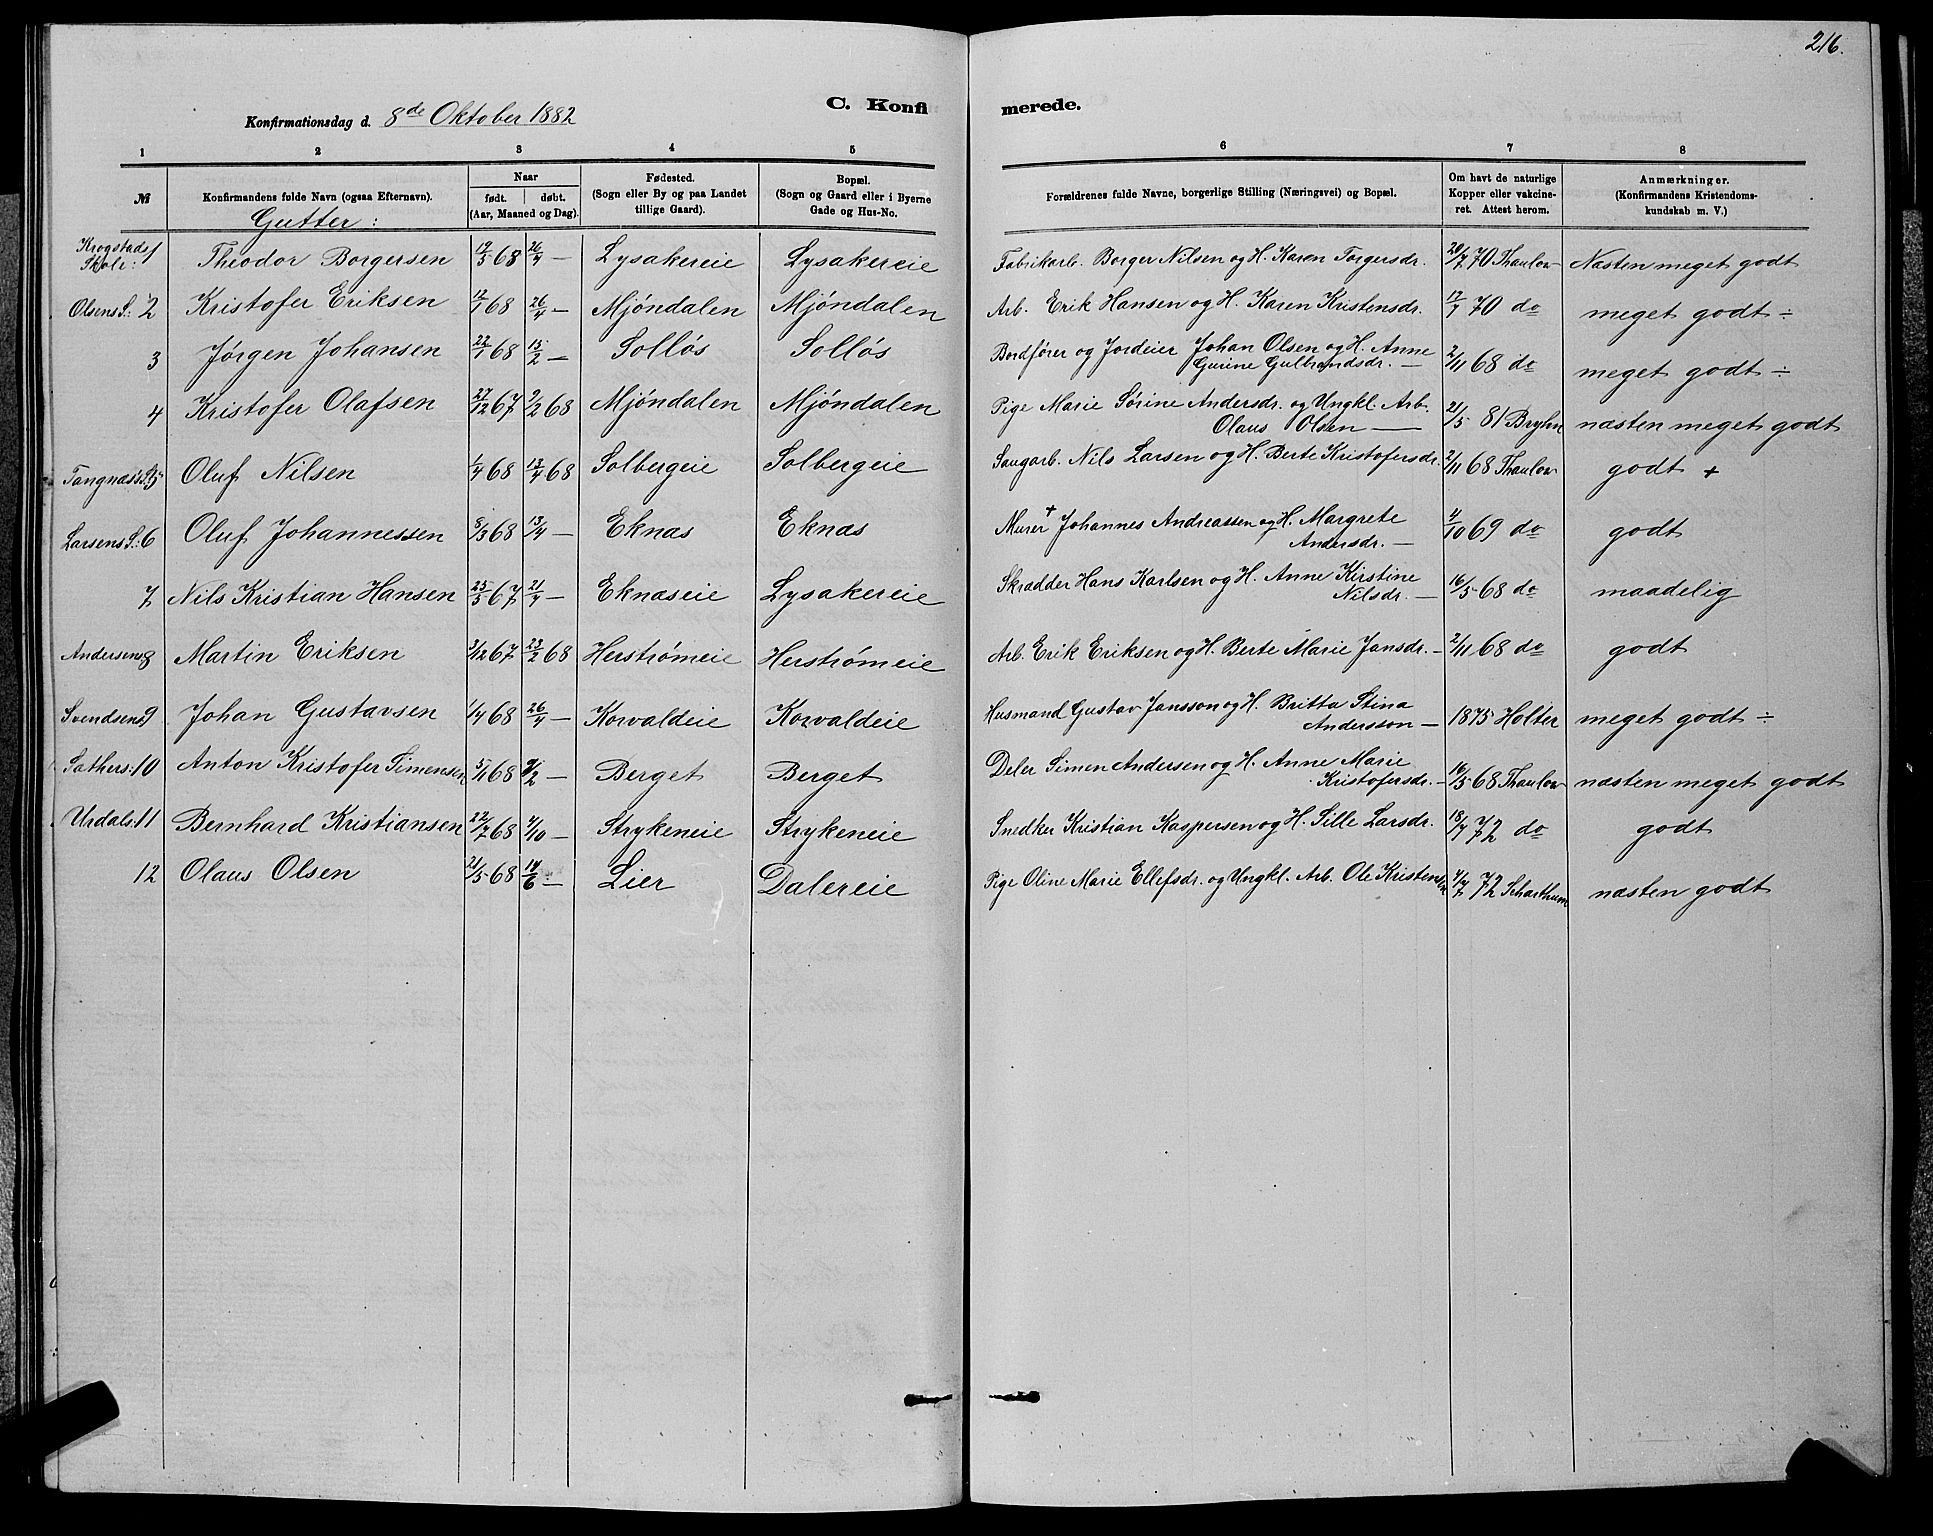 216.
C. Konfi merede.
Konfirmationsdag d. 8de Oktober 1882
1 2 3 4 5 6 7 8
№ Konfirmandens fulde Navn (ogsaa Efternavn). Naar født. døbt. (Aar, Maaned og Dag). Fødested. (Sogn eller By og paa Landet tillige Gaard). Bopæl. (Sogn og Gaard eller i Byerne Gade og Hus-No. Forældrenes fulde Navne, borgerlige Stilling (Næringsvei) og Bopæl. Om havt de naturlige Kopper eller vakcineret. Attest herom. Anmærkninger. (Konfirmandens Kristendomskundskab m. V.)
Gutter:
Krogstads Skole: 1 Theodor Borgersen 19/3 68 26/4 — Lysakereie Lysakereie Fabrikarb. Borger Nilsen og H. Karen Torgersdr. 20/7 70 Thaulow Næsten meget godt
Olsens S: 2 Kristofer Eriksen 12/1 68 26/4 — Mjöndalen Mjöndalen Arb. Erik Hansen og H. Karen Kristensdr. 17/7 70 do meget godt ÷
3 Jørgen Johansen 22/1 68 15/2 — Sollös Sollös Bordförer og Jordeier Johan Olsen og H. Anne
Gurine Gulbrandsdr. — 2/11 68 do meget godt ÷
4 Kristofer Olafsen 27/12 67 9/2 68 Mjöndalen Mjöndalen Pige Marie Sørine Andersdr. og Ungkl. Arb.
Olaus Olsen — 21/5 81 Bryhn næsten meget godt
Tangnæs S: 5 Oluf Nilsen 1/4 68 13/4 68 Solbergeie Solbergeie Saugarb. Nils Larsen og H. Berte Kristofersdr. 2/11 68 Thaulow godt +
Larsens S: 6 Oluf Johannessen 8/3 68 13/4 — Eknæs Eknæs Murer + Johannes Andreassen og H. Margrete
Andersdr. — 4/10 69 do godt
7 Nils Kristian Hansen 25/5 67 21/7 — Eknæseie Lysakereie Skrædder Hans Karlsen og H. Anne Kirstine
Nilsdr. — 16/5 68 do maadelig
Andersens 8 Martin Eriksen 3/12 67 23/2 68 Herstrømeie Herstrømeie Arb. Erik Eriksen og H. Berte Marie Jansdr. — 2/11 68 do godt
Svendsens 9 Johan Gustavsen 1/4 68 26/4 — Korvaldeie Korvaldeie Husmand Gustav Jansson og H. Britta Stina
Andersson — 1875 Holter meget godt ÷
Sæthers: 10 Anton Kristofer Simensen 5/1 68 9/2 — Berget Berget Deler Simen Andersen og H. Anne Marie
Kristofersdr. — 16/5 68 Thaulow næsten meget godt
Urdals: 11 Bernhard Kristiansen 22/7 68 4/10 — Strykeneie Strykeneie Snedker Kristian Kaspersen og H. Sille Larsdr. 18/7 72 do godt
12 Olaus Olsen 21/5 68 14/6 — Lier Dalereie Pige Oline Marie Ellefsdr. og Ungkl. Arb. Ole Kristensen 4/7 72 Scharthum næsten godt